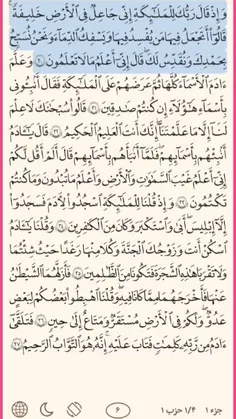 وَإِذْ قَالَ رَبُّكَ لِلْمَلَٰٓئِكَةِ إِنِّى جَاعِلٌ فِى ٱلْأَرْضِ خَلِيفَةً
قَالُوٓا۟ أَتَجْعَلُ فِيهَا مَن يُفْسِدُ فِيهَا وَيَسْفِكُ ٱلدِّمَآءَ وَنَحْنُ نُسَبِّحُ
بِحَمْدِكَ وَنُقَدِّسُ لَكَ قَالَ إِنِّىٓ أَعْلَمُ مَا لَا تَعْلَمُونَ ﴿٣٠﴾ وَعَلَّمَ
ءَادَمَ ٱلْأَسْمَآءَ كُلَّهَا ثُمَّ عَرَضَهُمْ عَلَى ٱلْمَلَٰٓئِكَةِ فَقَالَ أَنۢبِـُٔونِى
بِأَسْمَآءِ هَٰٓؤُلَآءِ إِن كُنتُمْ صَٰدِقِينَ ﴿٣١﴾ قَالُوا۟ سُبْحَٰنَكَ لَا عِلْمَ
لَنَآ إِلَّا مَا عَلَّمْتَنَآ إِنَّكَ أَنتَ ٱلْعَلِيمُ ٱلْحَكِيمُ ﴿٣٢﴾ قَالَ يَٰٓـَٔادَمُ
أَنۢبِئْهُم بِأَسْمَآئِهِمْ فَلَمَّآ أَنۢبَأَهُم بِأَسْمَآئِهِمْ قَالَ أَلَمْ أَقُل لَّكُمْ
إِنِّىٓ أَعْلَمُ غَيْبَ ٱلسَّمَٰوَٰتِ وَٱلْأَرْضِ وَأَعْلَمُ مَا تُبْدُونَ وَمَا كُنتُمْ
تَكْتُمُونَ ﴿٣٣﴾ وَإِذْ قُلْنَا لِلْمَلَٰٓئِكَةِ ٱسْجُدُوا۟ لِـَٔادَمَ فَسَجَدُوٓا۟
إِلَّآ إِبْلِيسَ أَبَىٰ وَٱسْتَكْبَرَ وَكَانَ مِنَ ٱلْكَٰفِرِينَ ﴿٣٤﴾ وَقُلْنَا يَٰٓـَٔادَمُ
ٱسْكُنْ أَنتَ وَزَوْجُكَ ٱلْجَنَّةَ وَكُلَا مِنْهَا رَغَدًا حَيْثُ شِئْتُمَا
وَلَا تَقْرَبَا هَٰذِهِ ٱلشَّجَرَةَ فَتَكُونَا مِنَ ٱلظَّٰلِمِينَ ﴿٣٥﴾ فَأَزَلَّهُمَا ٱلشَّيْطَٰنُ
عَنْهَا فَأَخْرَجَهُمَا مِمَّا كَانَا فِيهِ وَقُلْنَا ٱهْبِطُوا۟ بَعْضُكُمْ لِبَعْضٍ
عَدُوٌّ وَلَكُمْ فِى ٱلْأَرْضِ مُسْتَقَرٌّ وَمَتَٰعٌ إِلَىٰ حِينٍ ﴿٣٦﴾ فَتَلَقَّىٰٓ
ءَادَمُ مِن رَّبِّهِۦ كَلِمَٰتٍ فَتَابَ عَلَيْهِ إِنَّهُۥ هُوَ ٱلتَّوَّابُ ٱلرَّحِيمُ ﴿٣٧﴾
جزء ١ ١/٤ حزب ١ ٦